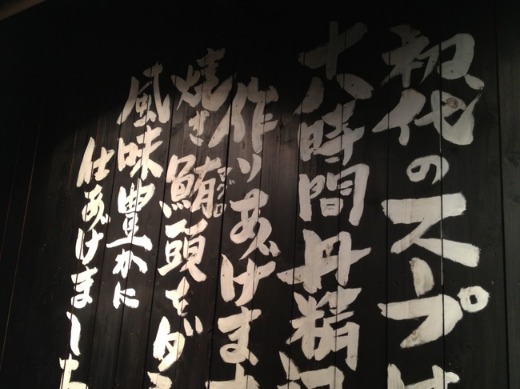 初代のスープは
十八時間丹精込
作りあげます
焼き鮪頭をダ
マグロ
風味豊かに
仕あげました